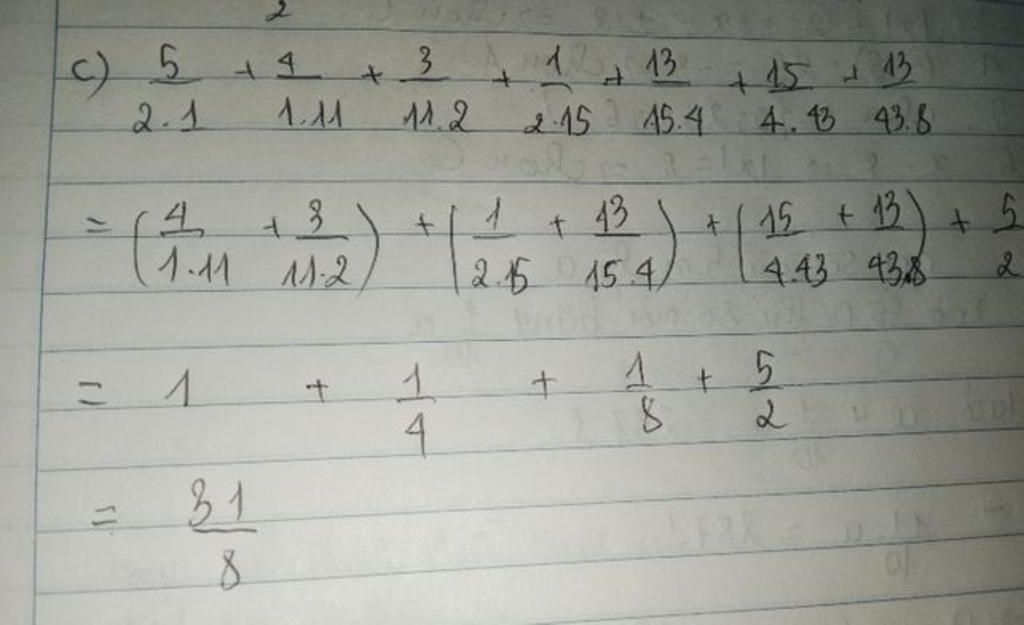 2
c) 5/2.1 + 4/1.11 + 3/11.2 + 1/2.15 + 13/15.4 + 15/4.43 + 13/43.8
= (4/1.11 + 3/11.2) + (1/2.15 + 13/15.4) + (15/4.43 + 13/43.8) + 5/2
= 1 + 1/4 + 1/8 + 5/2
= 31/8